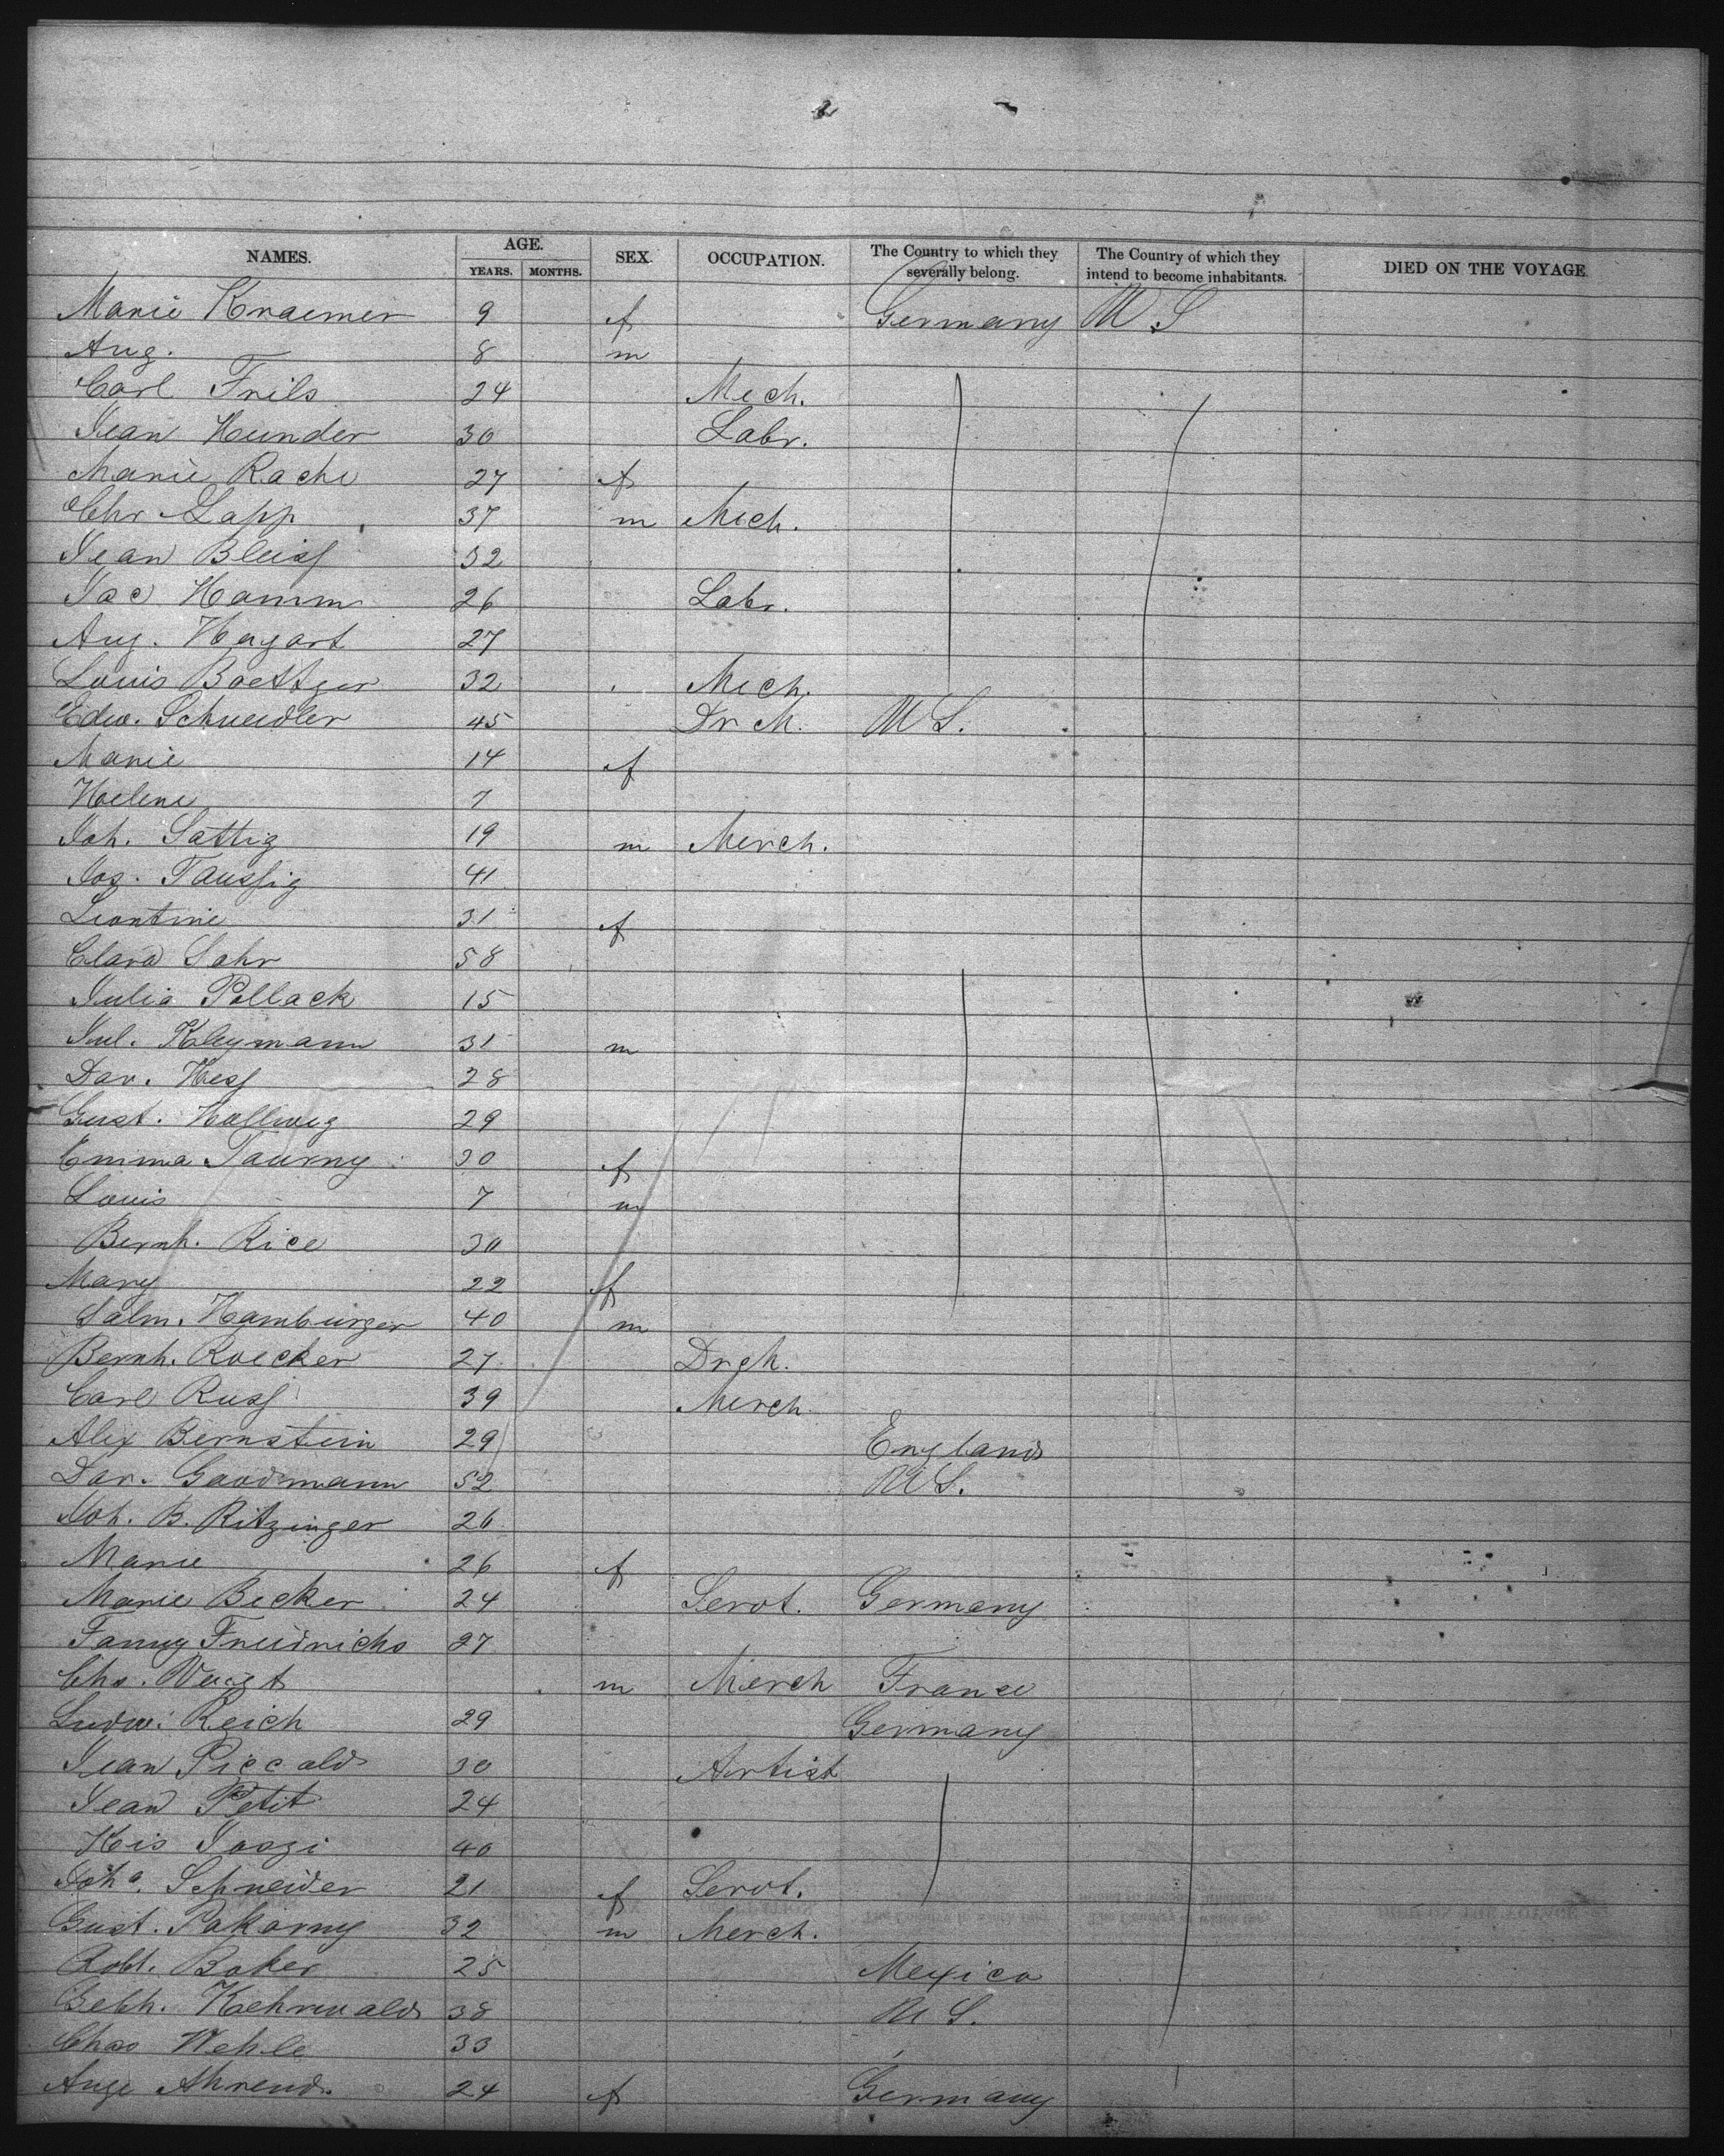 NAMES. AGE. YEARS. MONTHS. SEX. OCCUPATION. The Country to which they severally belong. The Country of which they intend to become inhabitants. DIED ON THE VOYAGE.
Marie Kraemer 9 f Germany U.S
Aug. 8 m
Carl Frils 24 Mech.
Jean Hunder 30 Labr.
Marie Rache 27 f
Chr Lapp 37 m Mech.
Jean Bleiss 32
Jac Hamm 26 Labr.
Aug. Hagart 27
Louis Boettger 32 Mech.
Edw. Schneidler 45 Dr M. U S.
Marie 14 f
Helene 7
Joh. Sattig 19 m Merch.
Jos. Taussig 41
Leontine 31 f
Clara Sahr 58
Julia Pollack 15
Jul. Kleymann 31 m
Dav. Hess 28
Gust. Hollweg 29
Emma Taurny 30 f
Louis 7 m
Bernh. Rice 30
Mary 22 f
Salm. Hamburger 40 m
Bernh. Roecker 27 Drgh.
Carl Russ 39 Merch.
Alex Bernstein 29 England
Dav. Goodmann 52 U S.
Joh. B. Ritzinger 26
Marie 26 f
Marie Becker 24 Servt. Germany
Fanny Freidrichs 27
Chs. Weigt m Merch France
Ludw. Reich 29 Germany
Jean Piccald 30 Artist
Jean Petit 24
Kis Joszi 40
Joha. Schneider 21 f Servt.
Gust. Pokorny 32 m Merch.
Robt. Baker 25 Mexico
Gebh. Kehrwald 38 U S.
Chas Wehle 33
Auge Ahrend. 24 f Germany